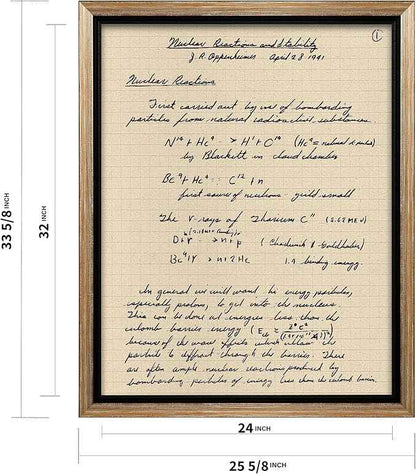 ①
Nuclear Reactions and Stability
J. R. Oppenheimer April 28 1941
Nuclear Reactions
First carried out by use of bombarding
particles from natural radioactive substances.
N¹⁴ + He⁴ → H¹ + C¹⁴ (He⁴ = natural α particles)
by Blackett in cloud chamber
Be⁹ + He⁴ : C¹² + n
first source of neutrons - yield small
The γ-rays of Thorium C" (2.62 MEV)
D + γ → n + p (Chadwick & Goldhaber)
Be⁹ + γ → n + 2He 1.7 binding energy
In general we will want hi energy particles,
especially protons, to get into the nucleus.
This can be done at energies less than the
coulomb barrier energy
because of the wave effects which allow the
particle to diffract through the barrier. There
are often ample nuclear reactions produced by
bombarding particles of energy less than the coulomb barrier.
33 5/8 INCH
32 INCH
24 INCH
25 5/8 INCH